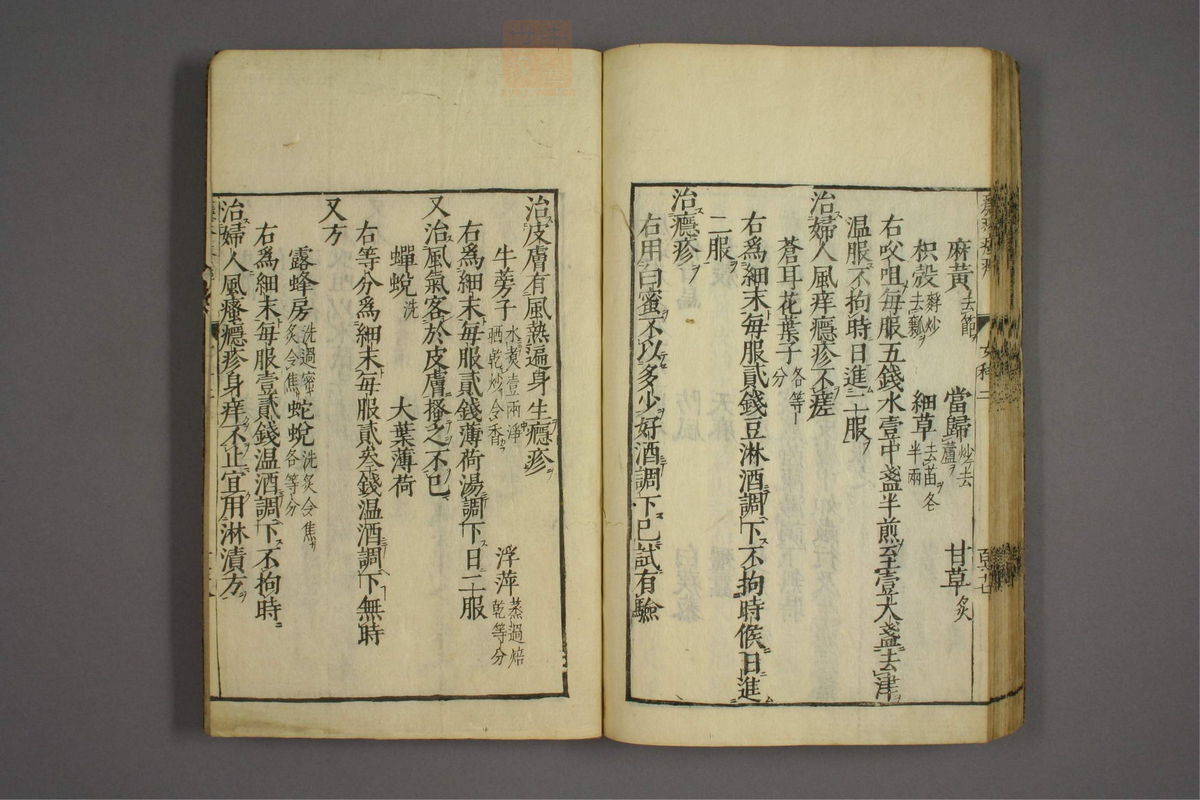 麻黃去節 當歸炒去蘆 甘草炙
枳殼麸炒去瓤 細草去苗各半兩
右㕮咀每服五錢水壹中盞半煎至壹大盞去津
温服不拘時日進二服
治婦人風痒癮疹不瘥
蒼耳花葉子各等分
右爲細末每服貳錢豆淋酒調下不拘時候日進
二服
治癮疹
右用白蜜不以多少好酒調下已試有驗
治皮膚有風熱遍身生癮疹
牛蒡子水煑壹兩淨晒乾炒令香 浮萍蒸過焙乾等分
右爲細末每服貳錢薄荷湯調下日二服
又治風氣客於皮膚搔之不已
蟬蛻洗 大葉薄荷
右等分爲細末每服貳叁錢温酒調下無時
又方
露蜂房洗過蜜炙令焦 蛇蛻洗炙令焦各等分
右爲細末每服壹貳錢温酒調下不拘時
治婦人風瘙癮疹身痒不止宜用淋漬方